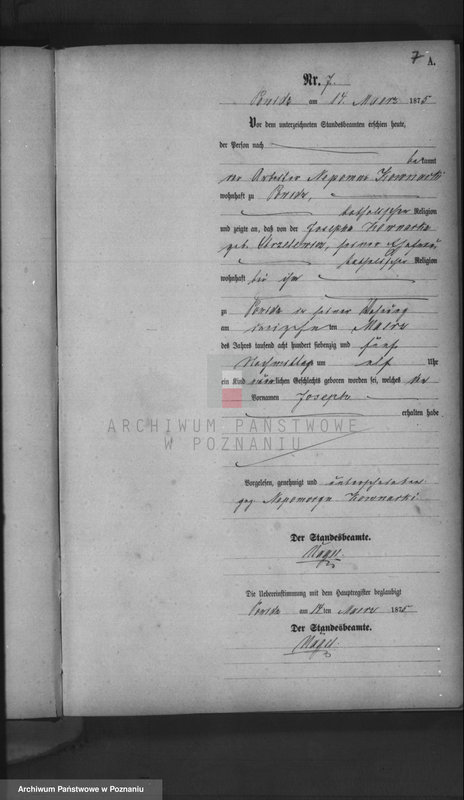 7 A.
Nr. 7.
am 14. Maerz 1875
Vor dem unterzeichneten Standesbeamten erschien heute,
der Person nach
bekannt
der Arbeiter Nepomuc Kownacki
wohnhaft zu
katholischer Religion
und zeigte an, daß von der Josepha Kownacka
geb. seiner Ehefrau
katholischer Religion
wohnhaft bei ihm
zu in seiner Wohnung
am ten Maerz
des Jahres tausend acht hundert siebenzig und fünf
Nachmittags um elf Uhr
ein Kind männlichen Geschlechts geboren worden sei, welches
Vornamen Joseph
erhalten habe
Vorgelesen, genehmigt und unterschrieben
gez. Kownacki
Der Standesbeamte.
Nagel.
Die Uebereinstimmung mit dem Hauptregister beglaubigt
am 14 ten Maerz 1875
Der Standesbeamte.
Nagel.
ARCHIWUM PAŃSTWOWE
W POZNANIU
Archiwum Państwowe w Poznaniu